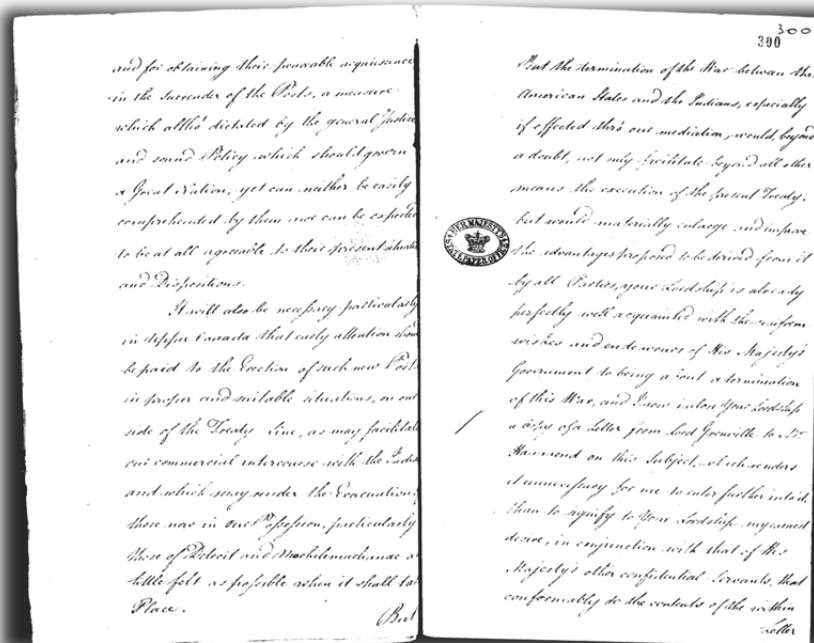 and for obtaining their peaceable acquiescence
in the Surrender of the Posts, a measure
which altho' dictated by the general Justice
and sound Policy which should govern
a Great Nation, yet can neither be easily
comprehended by them nor can be expected
to be at all agreeable to their present situation
and Dispositions.
It will also be necessary particularly
in Upper Canada that early attention should
be paid to the Erection of such new Posts
in proper and suitable situations, on our
side of the Treaty Line, as may facilitate
our commercial intercourse with the Indians
and which may render the Evacuation of
those now in our Possession, particularly
those of Detroit and Michilimackinac as
little felt as possible when it shall take
Place.
But
300
300
But the termination of the War between the
American States and the Indians, especially
if effected thro' our mediation, would, beyond
a doubt, not only facilitate beyond all other
means the execution of the present Treaty;
but would materially enlarge and improve
the advantages proposed to be derived from it
by all Parties, your Lordship is already
perfectly well acquainted with the uniform
wishes and endeavours of His Majesty's
Government to bring about a termination
of this War, and I now inclose Your Lordship
a Copy of a Letter from Lord Grenville to Mr.
Hammond on this Subject, which renders
it unnecessary for me to enter further into it
than to signify to Your Lordship my earnest
desire, in conjunction with that of His
Majesty's other confidential Servants, that
conformably to the contents of the within
Letter